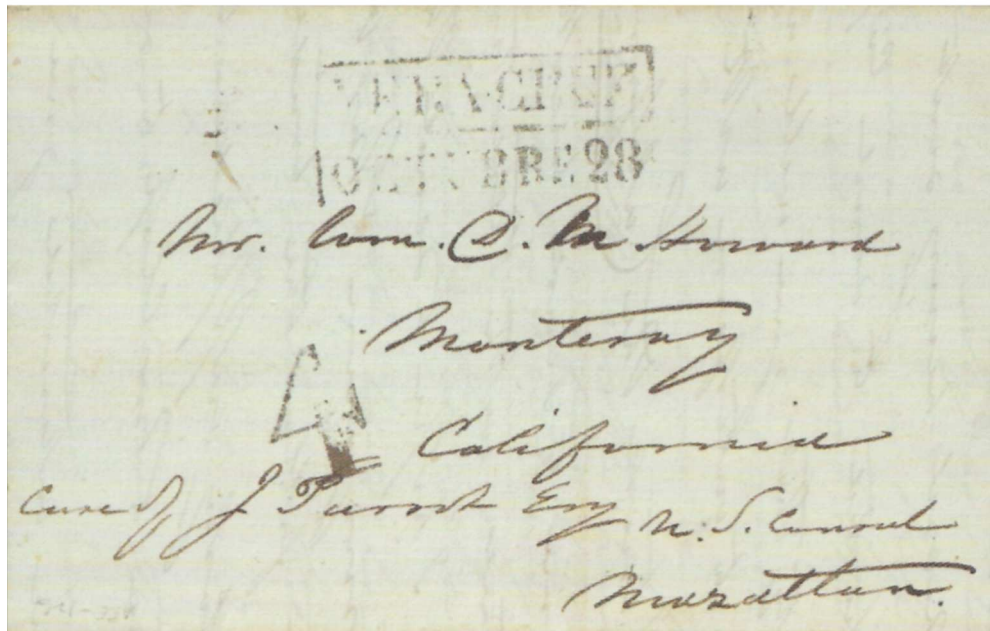 VERA-CRUZ
OCTUBRE 28
Mr. Wm. D. M Howard
Monteray
4
California
Care of J Parrott Esq U. S. Consul
Mazattan.